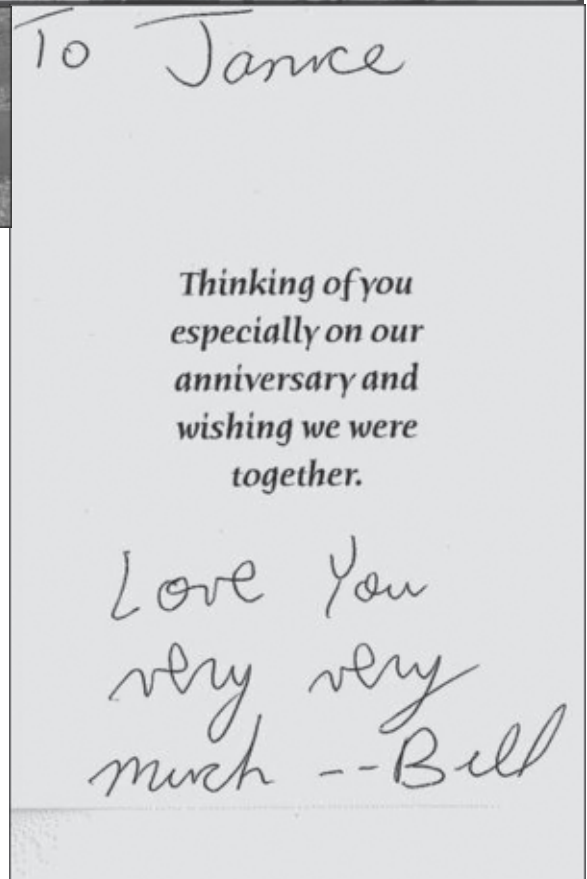 To Janice
Thinking of you
especially on our
anniversary and
wishing we were
together.
Love You
very very
much --Bill